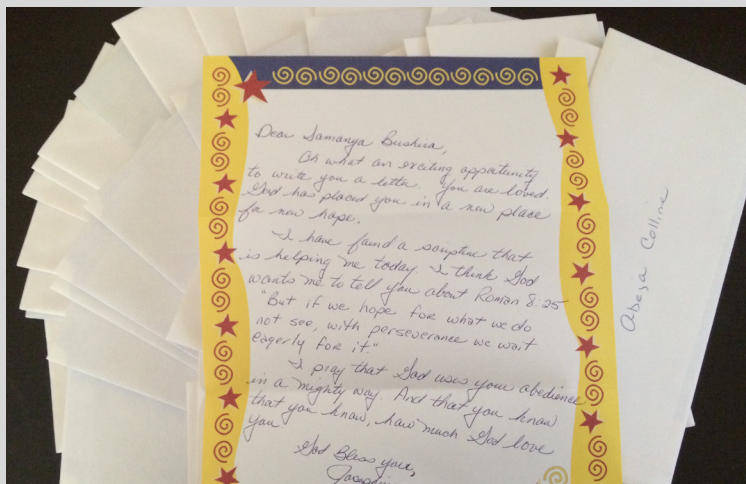 Dear Samanya Bushira,
Oh what an exciting opportunity
to write you a letter. You are loved.
God has placed you in a new place
for new hope.
I have found a scripture that
is helping me today. I think God
wants me to tell you about Roman 8:25
"But if we hope for what we do
not see, with perseverance we wait
eagerly for it."
I pray that God uses your obedience
in a mighty way. And that you know
that you know, how much God love
you
God Bless you,
Abeza Colline